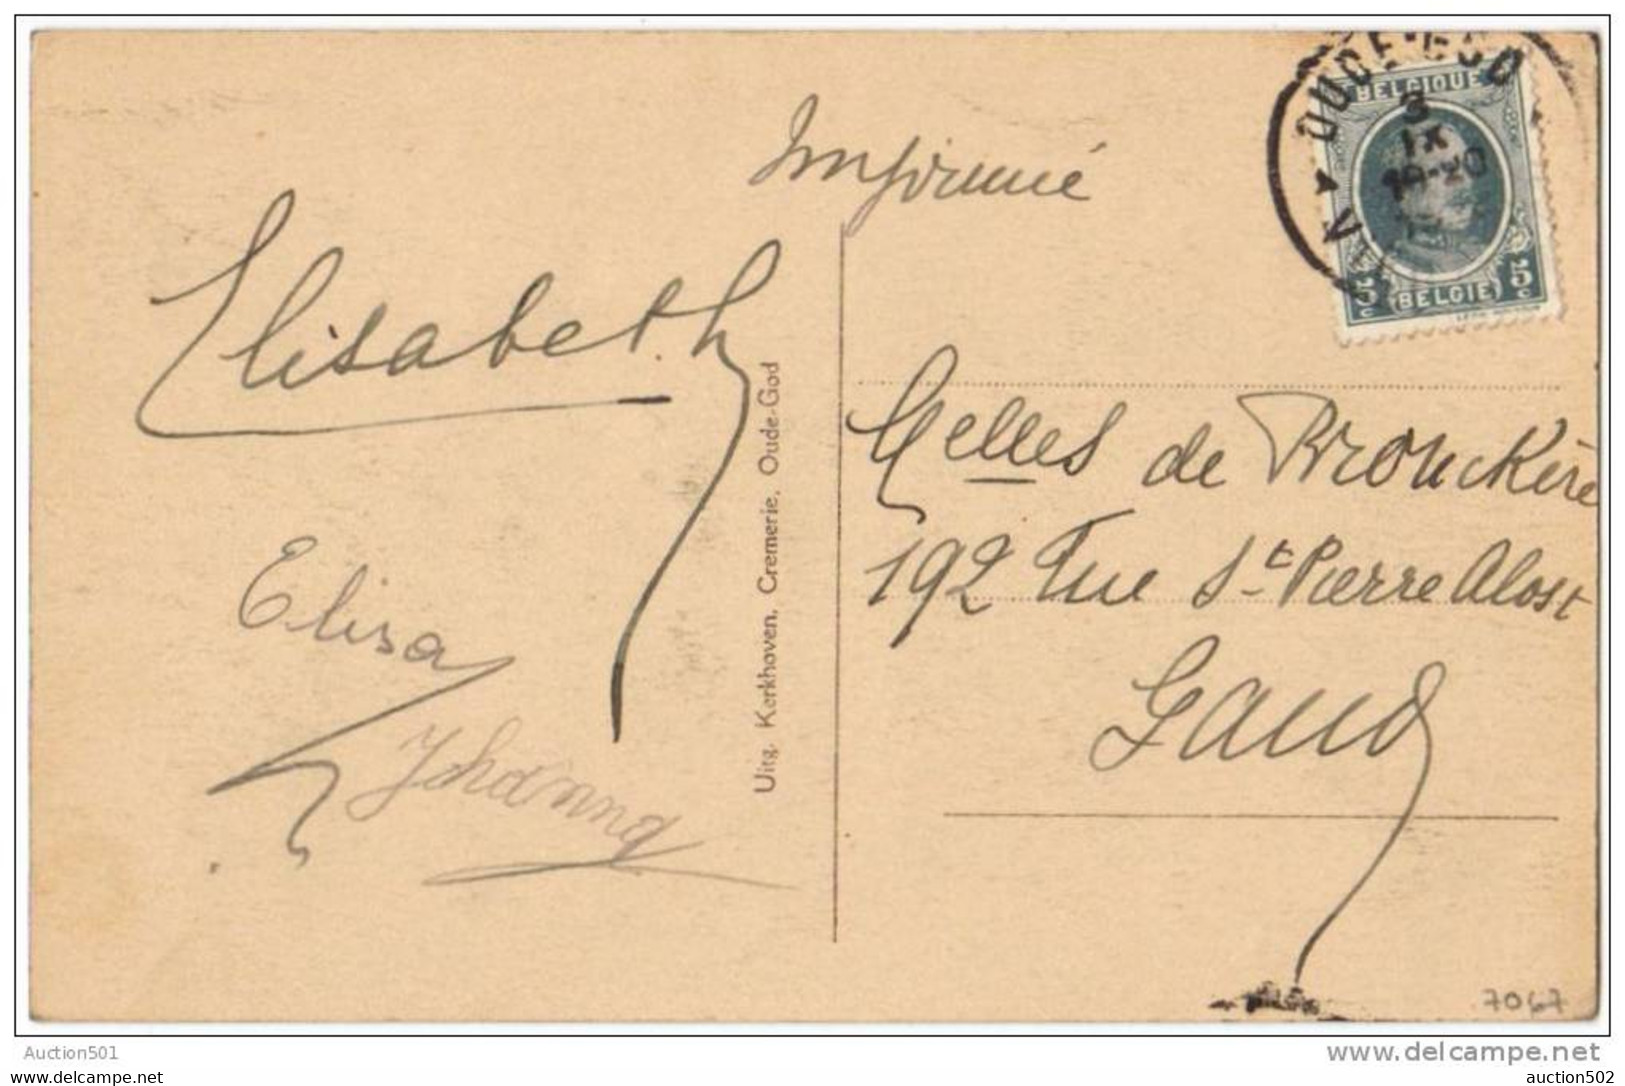 Imprimé
OUDE-GOD
BELGIQUE
IX
5c 5c
BELGIE
Elisabeth
Elisa
Johanna
Uitg. Kerkhoven, Cremerie, Oude-God
Melles de Brouckère
192 Rue St Pierre Alost
Gand
7067
Auction501
www.delcampe.net
auction502